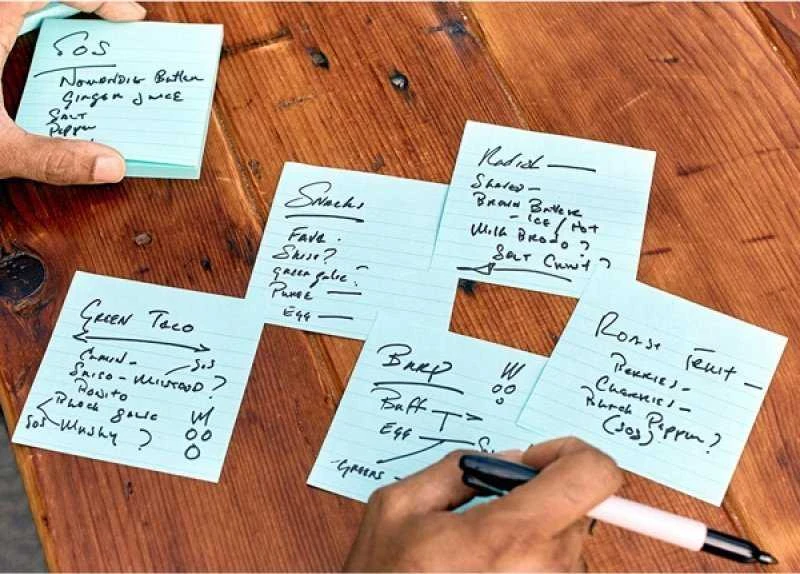 SOS
Ginger Juice
Salt
Pepper
Snacks
Fava
Shiso?
green garlic?
Puree —
Egg —
Radish —
Shaved —
Brown Butter
- ice / Hot
Milk Bread?
Salt
Green Taco
SOS
Shiso - Mustard?
Black garlic
SOS Mushy ?
Buff
Egg
- Greens
Roast Fruit —
Berries -
Cherries -
Black Pepper
(SOS) ?